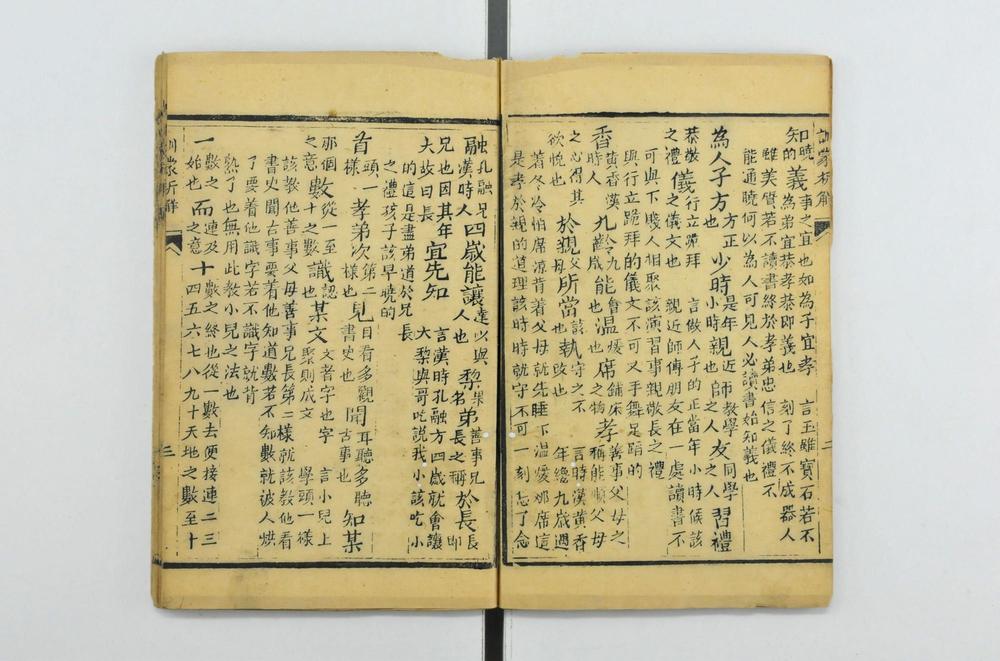 訓蒙析解
二
知曉的義事之宜也如為子宜孝為弟宜恭孝恭即義也 言玉雖寶石若不刻了終不成器人
雖美質若不讀書終於孝弟忠信之儀禮不
能通曉何以為人可見人必讀書始知義也
為人子方方正也少時是年小時親近也師教學之人友同學之人習禮
恭敬之禮儀行立跪拜之儀文也 言做人子的正當年小時候該親近師傅朋友在一處讀書不
可與下賤人相聚該演習事親敬長之禮
與行立跪拜的儀文不可又手舞足蹈的
香黃香漢時人九齡齡歲也能會也溫煖也席鋪床之物孝善事父母之稱能順父母
之心得其欲悅也於親父母所當應該也執守之不敢也 言時漢黃香年纔九歲遇
着冬冷怕席涼背着父母就先睡下溫煖那席這
是孝於親的道理該時時執守不可一刻忘了念
融孔融漢時人四歲能讓達以與人也梨果名弟善事兄長之稱於長長即
兄也因其年大故曰長宜先知言漢時孔融方四歲就會讓大梨與哥吃說我小該吃小
的這是盡弟道於兄長
之禮孩子該早曉的
首頭一樣孝弟次第二樣也見目看多觀書史也聞耳聽多聽古事也知某
那個之意數從一至十之數識認也某文文者字也聚則成文 言小兒上學頭一樣
該教他善事父母善事兄長第二樣就該教他看
書史聞古事要着他知道數若不知數就被人烘
了要着他識字若不識字就肯
熟了也無用此教小兒之法也
一數之始也而連及之意十數之終也從一數去便接連二三四五六七八九十天地之數至十
訓蒙析解
三